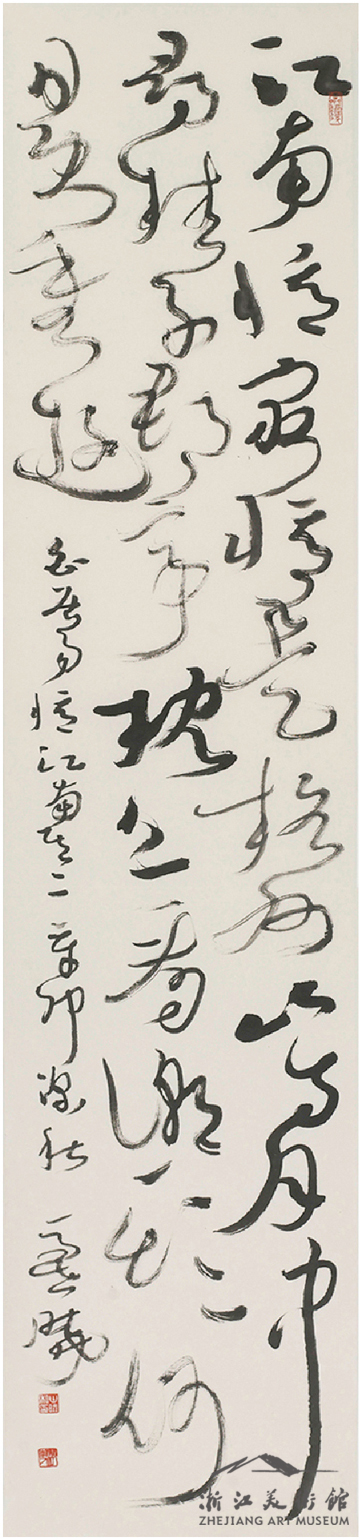 江南憶最憶是杭州山寺月中
尋桂子郡亭枕上看潮頭何
日更重遊
白居易憶江南其二辛卯深秋
浙江美術館
ZHEJIANG ART MUSEUM